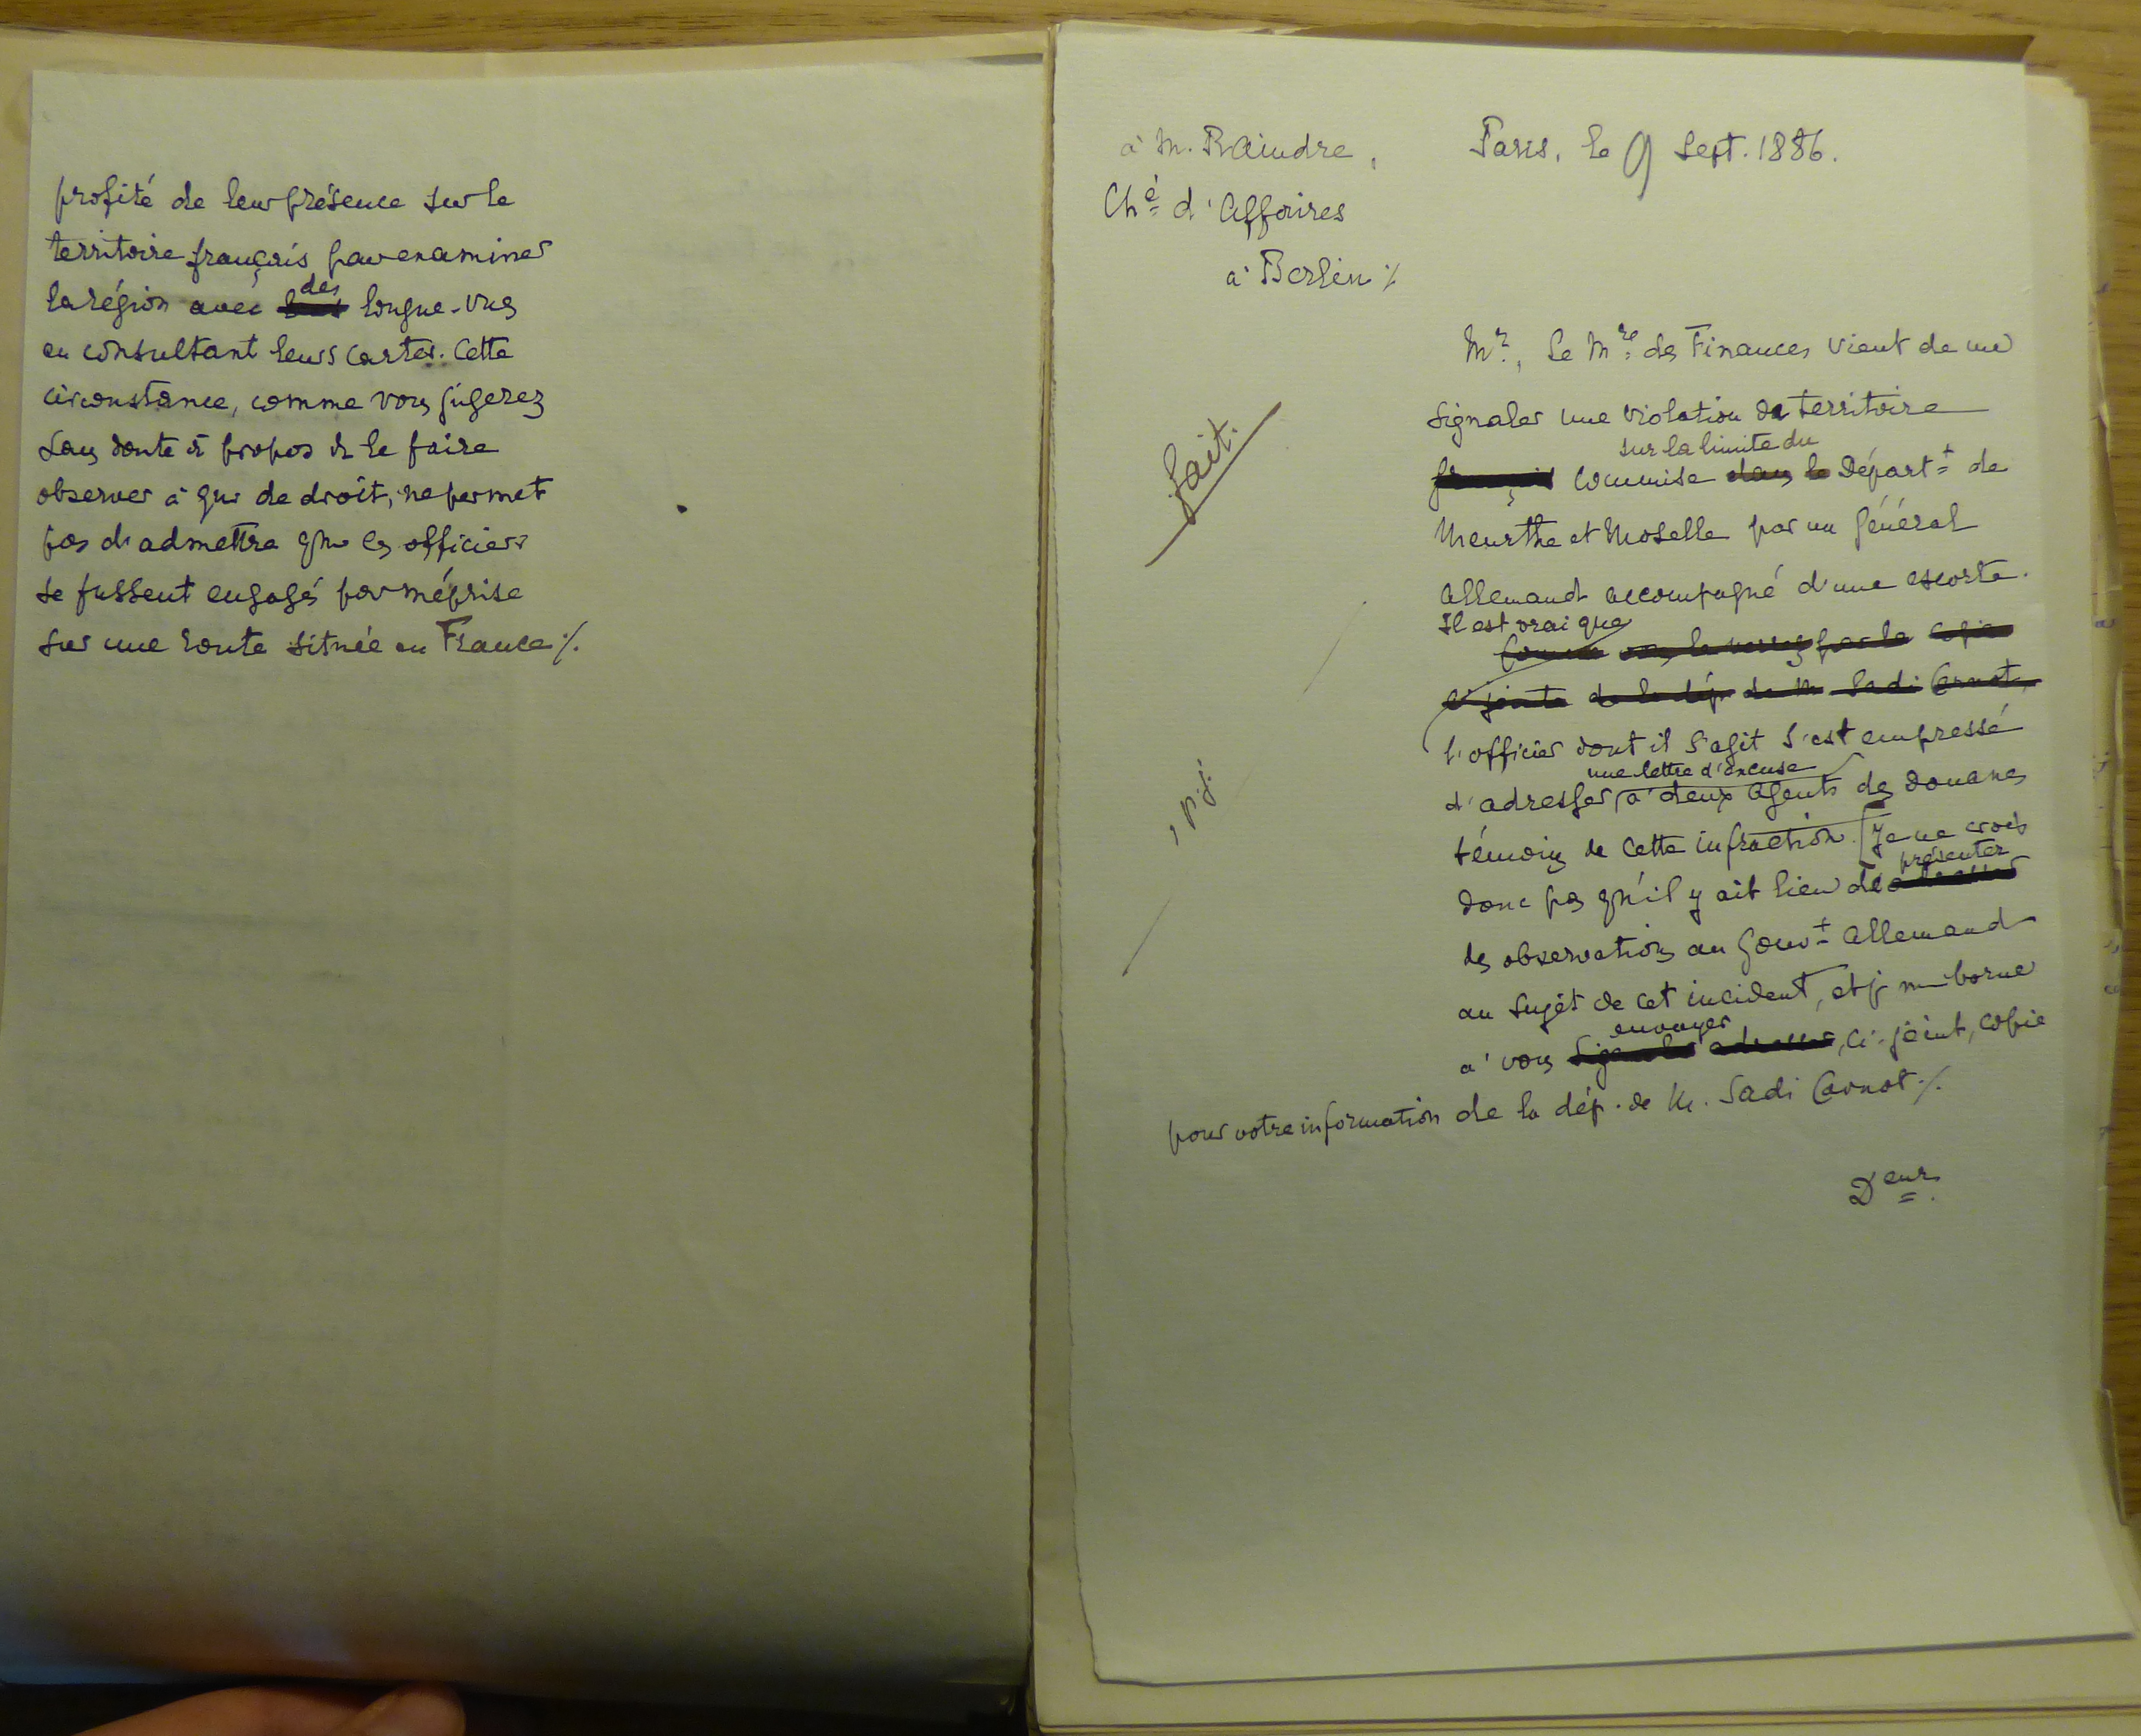 profité de leur présence sur le
territoire français pour examiner
la région avec des longue-vues
en consultant leurs cartes. Cette
circonstance, comme vous jugerez
sans doute à propos de le faire
observer à qui de droit, ne permet
pas d'admettre que les officiers
se fussent engagés par méprise
sur une route située en France ./.
à M. Raindre,
Ché d'Affaires
à Berlin ./.
Paris, le 9 Sept. 1886.
Mr, Le Mre des Finances vient de me
signaler une violation de territoire
français commise dans le sur la limite du Départt de
Meurthe et Moselle par un Général
Allemand accompagné d'une escorte.
Il est vrai que
Comme vous le verrez par la copie
ci-jointe de la dép. de M. Sadi Carnot,
l'officier dont il s'agit s'est empressé
d'adresser, une lettre d'excuse à deux agents des douanes
témoins de cette infraction. [Je ne crois
donc pas qu'il y ait lieu de présenter
des observations au Gouvt Allemand
au sujet de cet incident, et je me borne
à vous signaler adresser envoyer, ci-joint, copie
pour votre information de la dép. de M. Sadi Carnot ./.
Deur.
fait.
1 p.j.